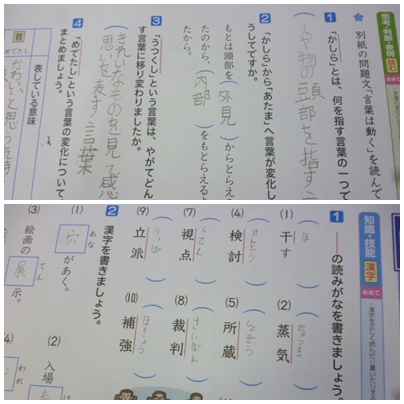 思考・判断・表現
めあて
別紙の問題文「言葉は動く」を読んで
1 「かしら」とは、何を指す言葉の一つで
人物の頭部を指す
2 「かしら」から「あたま」へ言葉が変化し
うしてですか。
もとは頭部を(外見)からとらえて
たのから、(内部)をもとらえるよ
たから。
3 「うつくし」という言葉は、やがてどん
す言葉に移り変わりましたか。
きれいなものを見て感
思いを表す言葉
4 「めでたし」という言葉の変化について
まとめましょう。
昔
めでたし
表している意味
かわいいと思う
知識・技能
漢字
めあて
・漢字を正しく読んだり書いたりする
1 ――の読みがなを書きましょう。
(1) 干す
ほ
(2) 蒸気
じょうき
(4) 検討
けんとう
(5) 所蔵
しょぞう
(7) 視点
してん
(8) 裁判
さいばん
(9) 立派
りっぱ
(10) 補強
ほきょう
2 漢字を書きましょう。
(1) 穴があく。
あな
(2) 入場
(3) 絵画の展示。
てん
(4)
われ